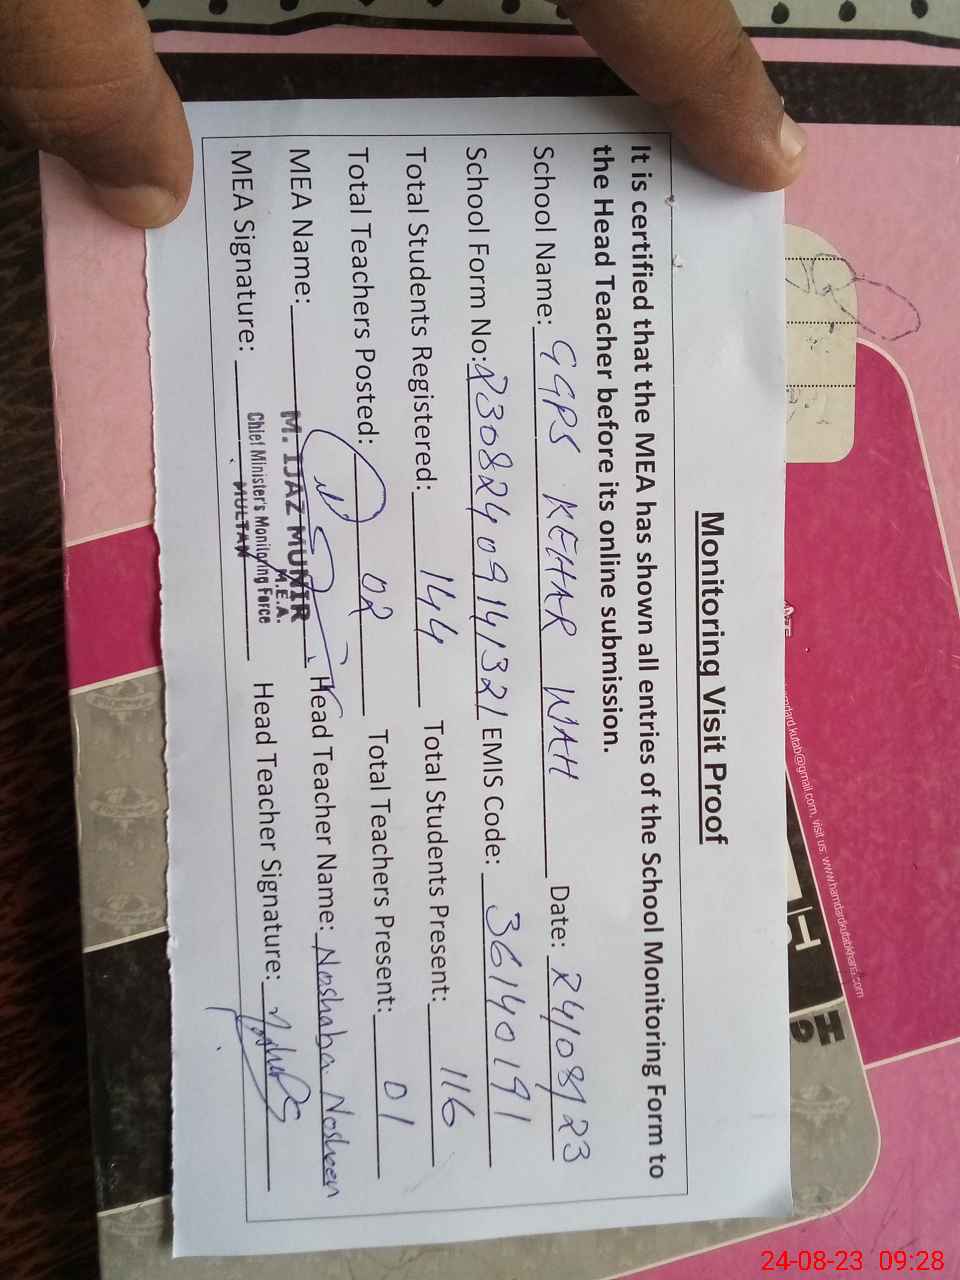 Monitoring Visit Proof
It is certified that the MEA has shown all entries of the School Monitoring Form to
the Head Teacher before its online submission.
School Name: GGPS KEHAR WAH Date: 24/08/23
School Form No: 23082409141321 EMIS Code: 36140191
Total Students Registered: 144 Total Students Present: 116
Total Teachers Posted: 02 Total Teachers Present: 01
MEA Name: M. IJAZ MUNIR Head Teacher Name: Noshaba Nosheen
M.E.A.
Chief Minister's Monitoring Force
MULTAN
MEA Signature: Head Teacher Signature:
hamdard.kutab@gmail.com, visit us: www.hamdardkutabkhana.com
24-08-23 09:28